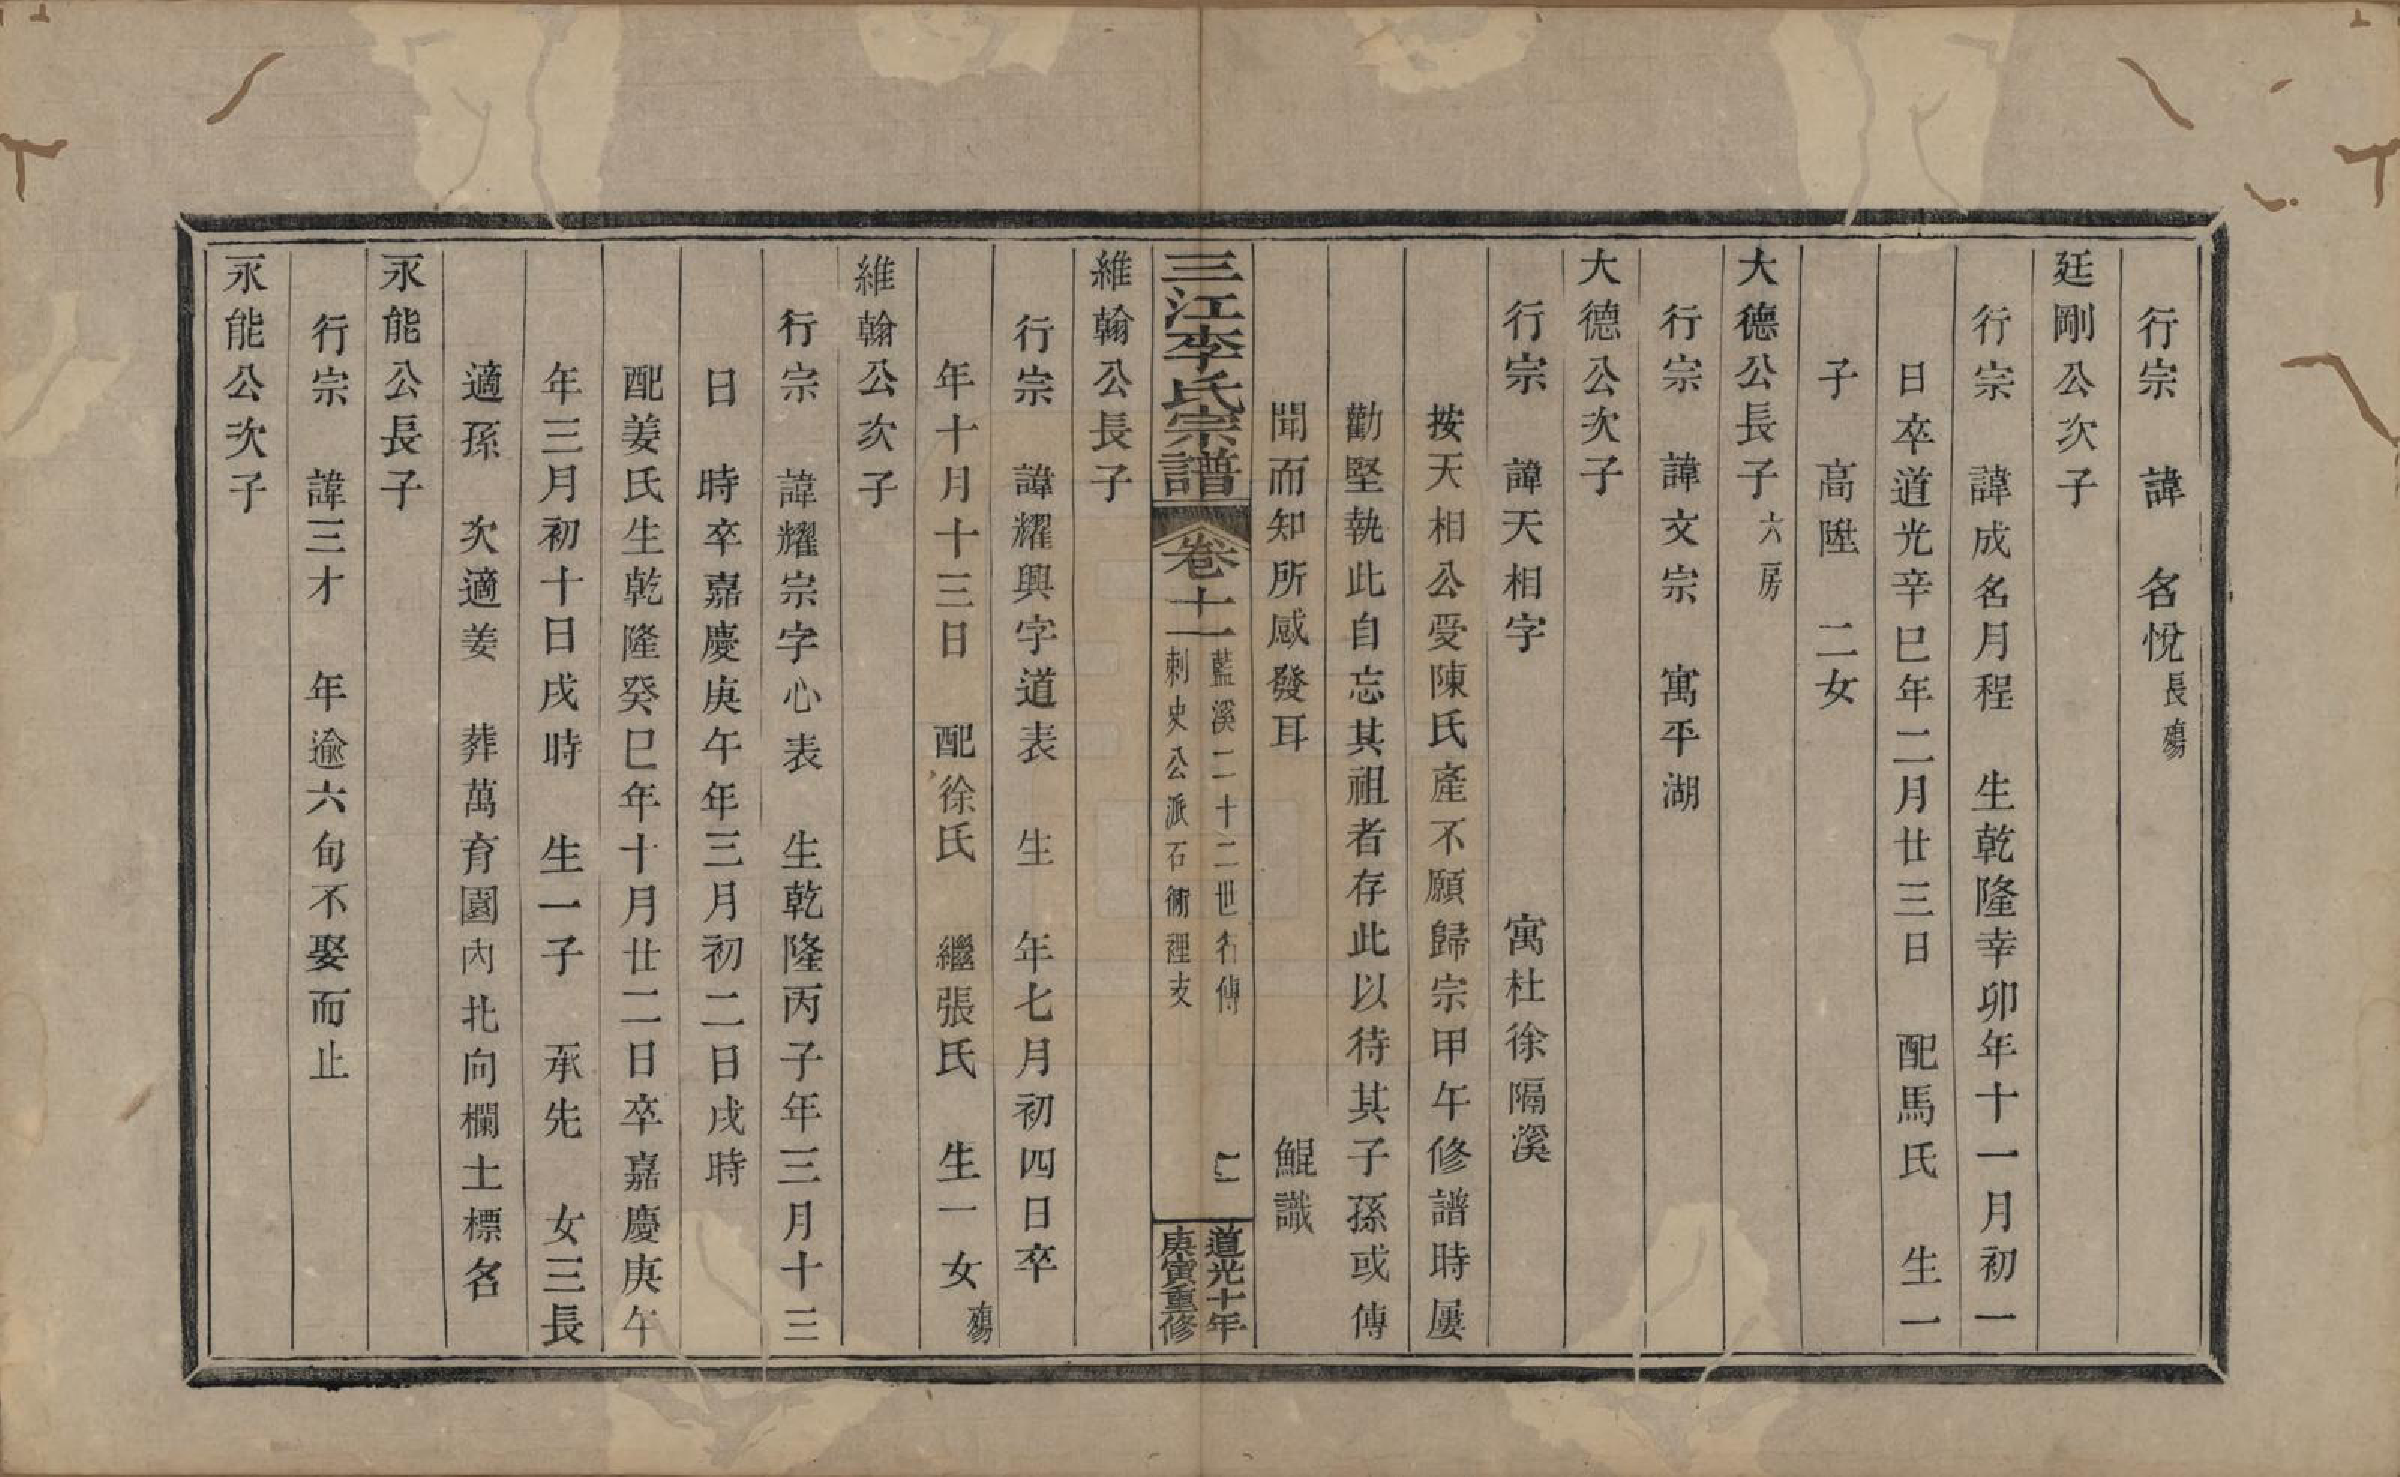 行宗　諱　名悅長殤
廷剛公次子
行宗　諱成名月程　生乾隆辛卯年十一月初一
日卒道光辛巳年二月廿三日　配馬氏　生一
子　高陞　二女
大德公長子六房
行宗　諱文宗　寓平湖
大德公次子
行宗　諱天相字　寓杜徐隔溪
按天相公受陳氏產不願歸宗甲午修譜時屢
勸堅執此自忘其祖者存此以待其子孫或傳
聞而知所感發耳　鯤識
三江李氏宗譜　卷十一　藍溪二十二世名傳
刺史公派石衕裡支
二
道光十年
庚寅重修
維翰公長子
行宗　諱耀興字道表　生　年七月初四日卒
年十月十三日　配徐氏　繼張氏　生一女殤
維翰公次子
行宗　諱耀宗字心表　生乾隆丙子年三月十三
日　時卒嘉慶庚午年三月初二日戌時
配姜氏生乾隆癸巳年十月廿二日卒嘉慶庚午
年三月初十日戌時　生一子　承先　女三長
適孫　次適姜　葬萬育園內北向欄土標名
永能公長子
行宗　諱三才　年逾六旬不娶而止
永能公次子